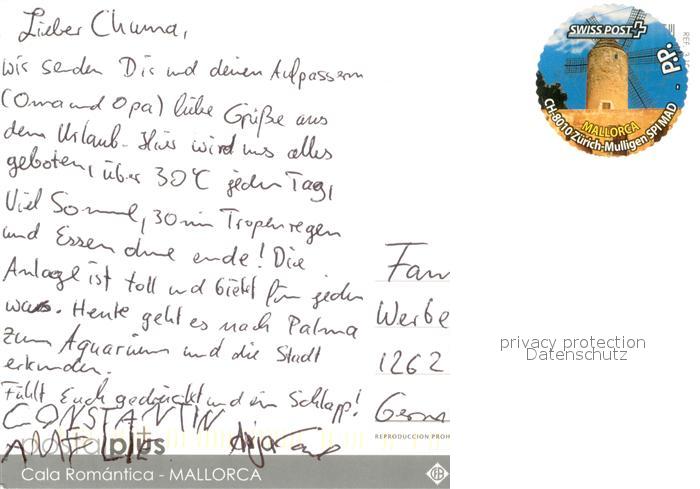 Lieber Chuma,
wir senden Dir und deinen Aufpassern
(Oma und Opa) liebe Grüße aus
dem Urlaub. Hier wird uns alles
geboten, über 30°C jeden Tag,
Viel Sonne, 30 min Tropenregen
und Essen ohne ende! Die
Anlage ist toll und bietet für jeden
was. Heute geht es nach Palma
zum Aquarium und die Stadt
erkunden.
Fühlt Euch gedrückt und ein Schlapp!
CONSTANTIN
AMELIE Anja
postalplus
Cala Romántica - MALLORCA
SWISS POST
P.P.
MALLORCA
CH-8010 Zürich-Mulligen SPI MAD
REF.
Fam
Werbe
1262
Germ
REPRODUCCION PROH
privacy protection
Datenschutz